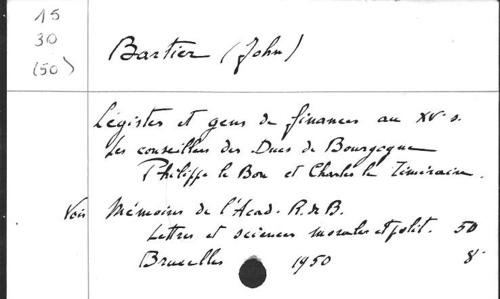 15
30
(50)
Bartier (John)
Légistes et gens de finances au XVe s.
Les conseillers des Ducs de Bourgogne
Philippe le Bon et Charles le Téméraire.
Vois Mémoires de l'Acad. R. de B.
Lettres et sciences morales et polit. 50
Bruxelles 1950 8°